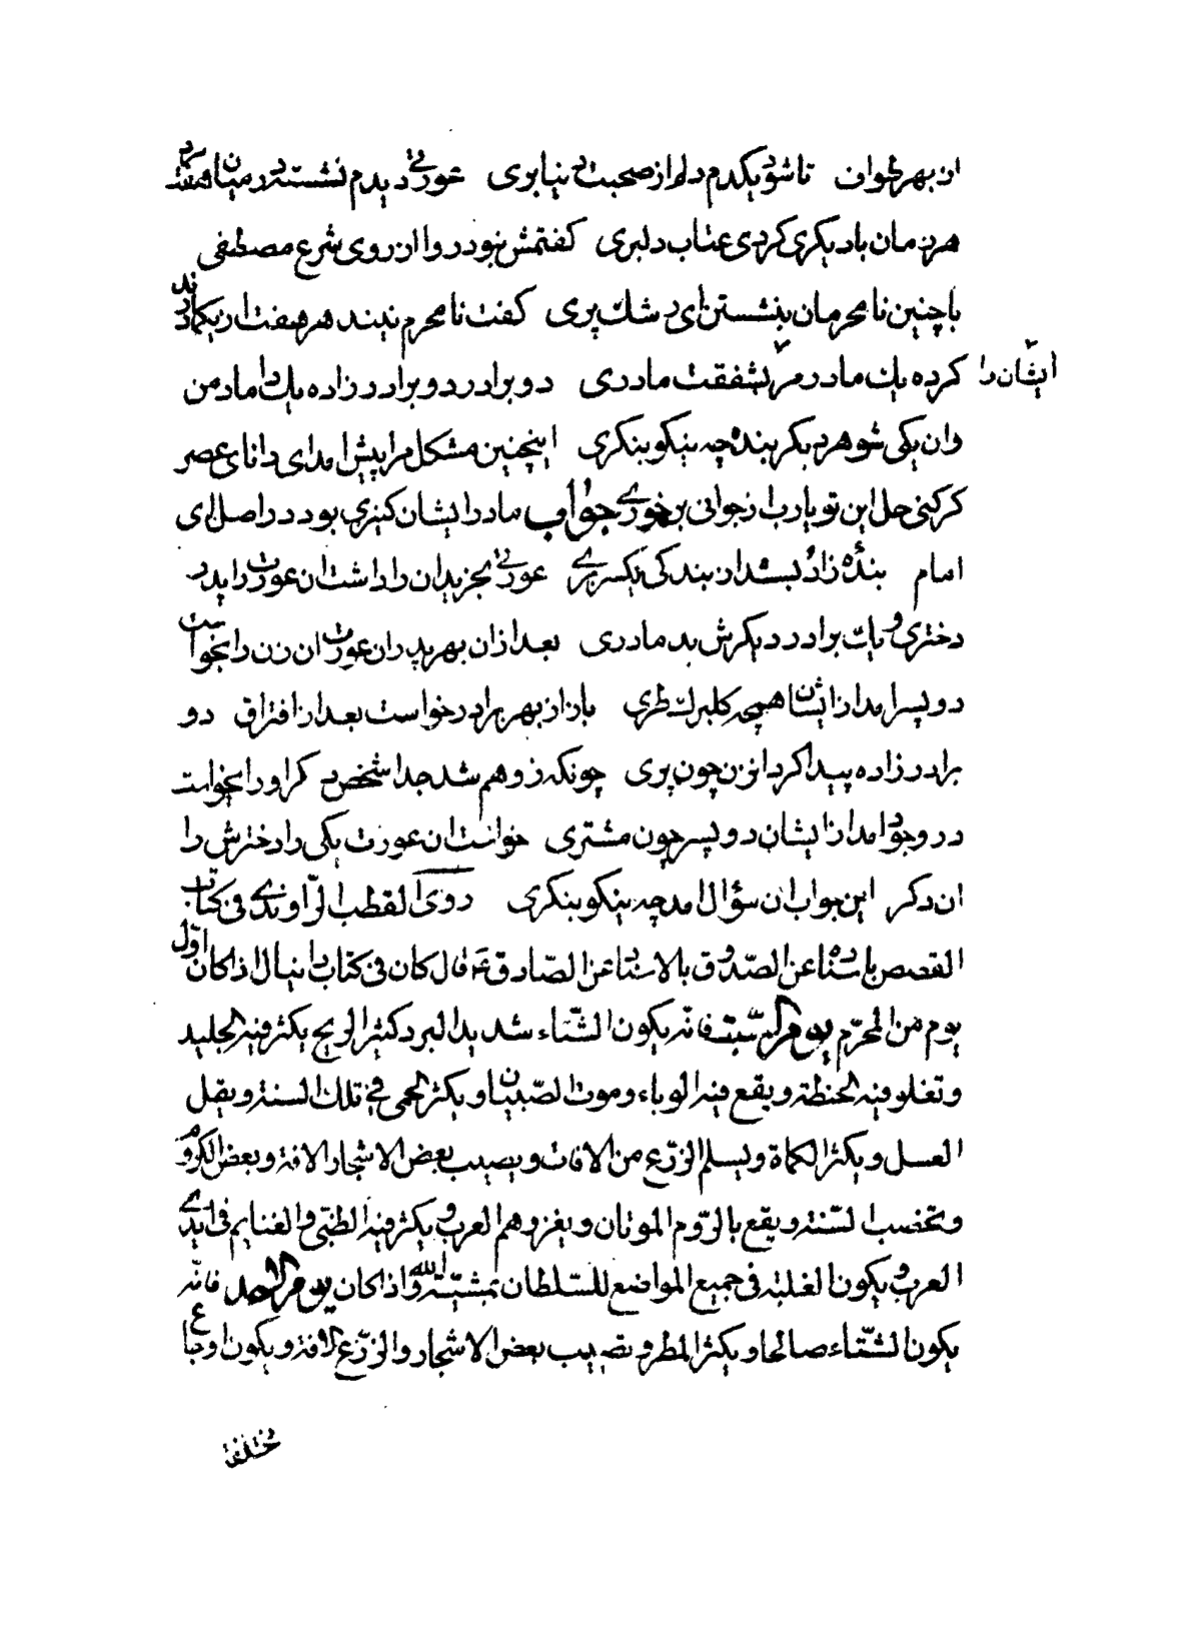 از بهر طواف تا شود یکدم دلم از صحبت دنیا بری عورتی دیدم نشسته در میان هفت مرد
هر زمان با دیگری کردی عتاب دلبری کفتمش نبود روا از روی شرع مصطفی
با چنین نامحرمان بنشستن ای رشک پری کفت نامحرم نیند هر هفت از یکمادرند
ایشان را کرده یک مادر مر بشفقت مادری دو برادر دو برادرزاده یک داماد من
وان یکی شوهر دیکر بنده چه نیکو بنکری اینچنین مشکل مرا پیش امد ای دانای عصر
کر کنی حل این تو یا رب از جوانی بر خوری جواب مادر ایشان کنیزی بود در اصل ای
امام بنده زاد بستد از بندکی یکسری عورتی بخرید ان را داشت ان عورت را پدر
دختری و یک برادر دیکرش بد مادری بعد ازان بهر پدر ان عورت ان زن را بخواست
دو پسر امد از ایشان همچو کلبرک طری باز از بهر برادر خواست بعد از افتراق دو
برادرزاده پیدا کرد ازن چون پری چونکه زو هم شد جدا شخص دکر او را بخواست
در وجود امد از ایشان دو پسر چون مشتری خواست ان عورت یکی را دخترش را
ان دکر این جواب ان سؤال امد چه نیکو بنکری روی القطب الرّاوندی فی کتاب
القصص باسناده عن الصّدوق بالاسناد عن الصّادق ع قال کان فی کتاب دانیال اذا کان اوّل
یوم من المحرّم یوم السّبت فانّه یکون الشّتاء شدید البرد کثیر الریح یکثر فیه الجلید
و تغلو فیه الحنطة و یقع فیه الوباء و موت الصّبیان و یکثر الحمی فی تلک السنة و یقل
العسل و یکثر الکماة و یسلم الزّرع من الافات و یصیب بعض الاشجار الافة و بعض الکروم
و تخصب السّنة و یقع بالرّوم الموتان و یغزوهم العرب و یکثر فیه السّبی و الغنایم فی ایدی
العرب و یکون الغلبة فی جمیع المواضع للسّلطان بمشیّة الله و اذا کان یوم الاحد فانّه
یکون الشّتاء صالحا و یکثر المطر و تصیب بعض الاشجار و الزّرع الافة و یکون اوجاع
مختلفة